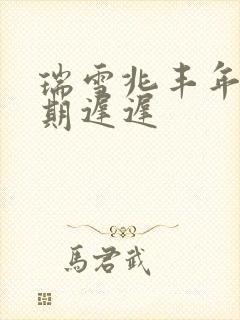 瑞雪兆丰年
期遲遲
馬君武